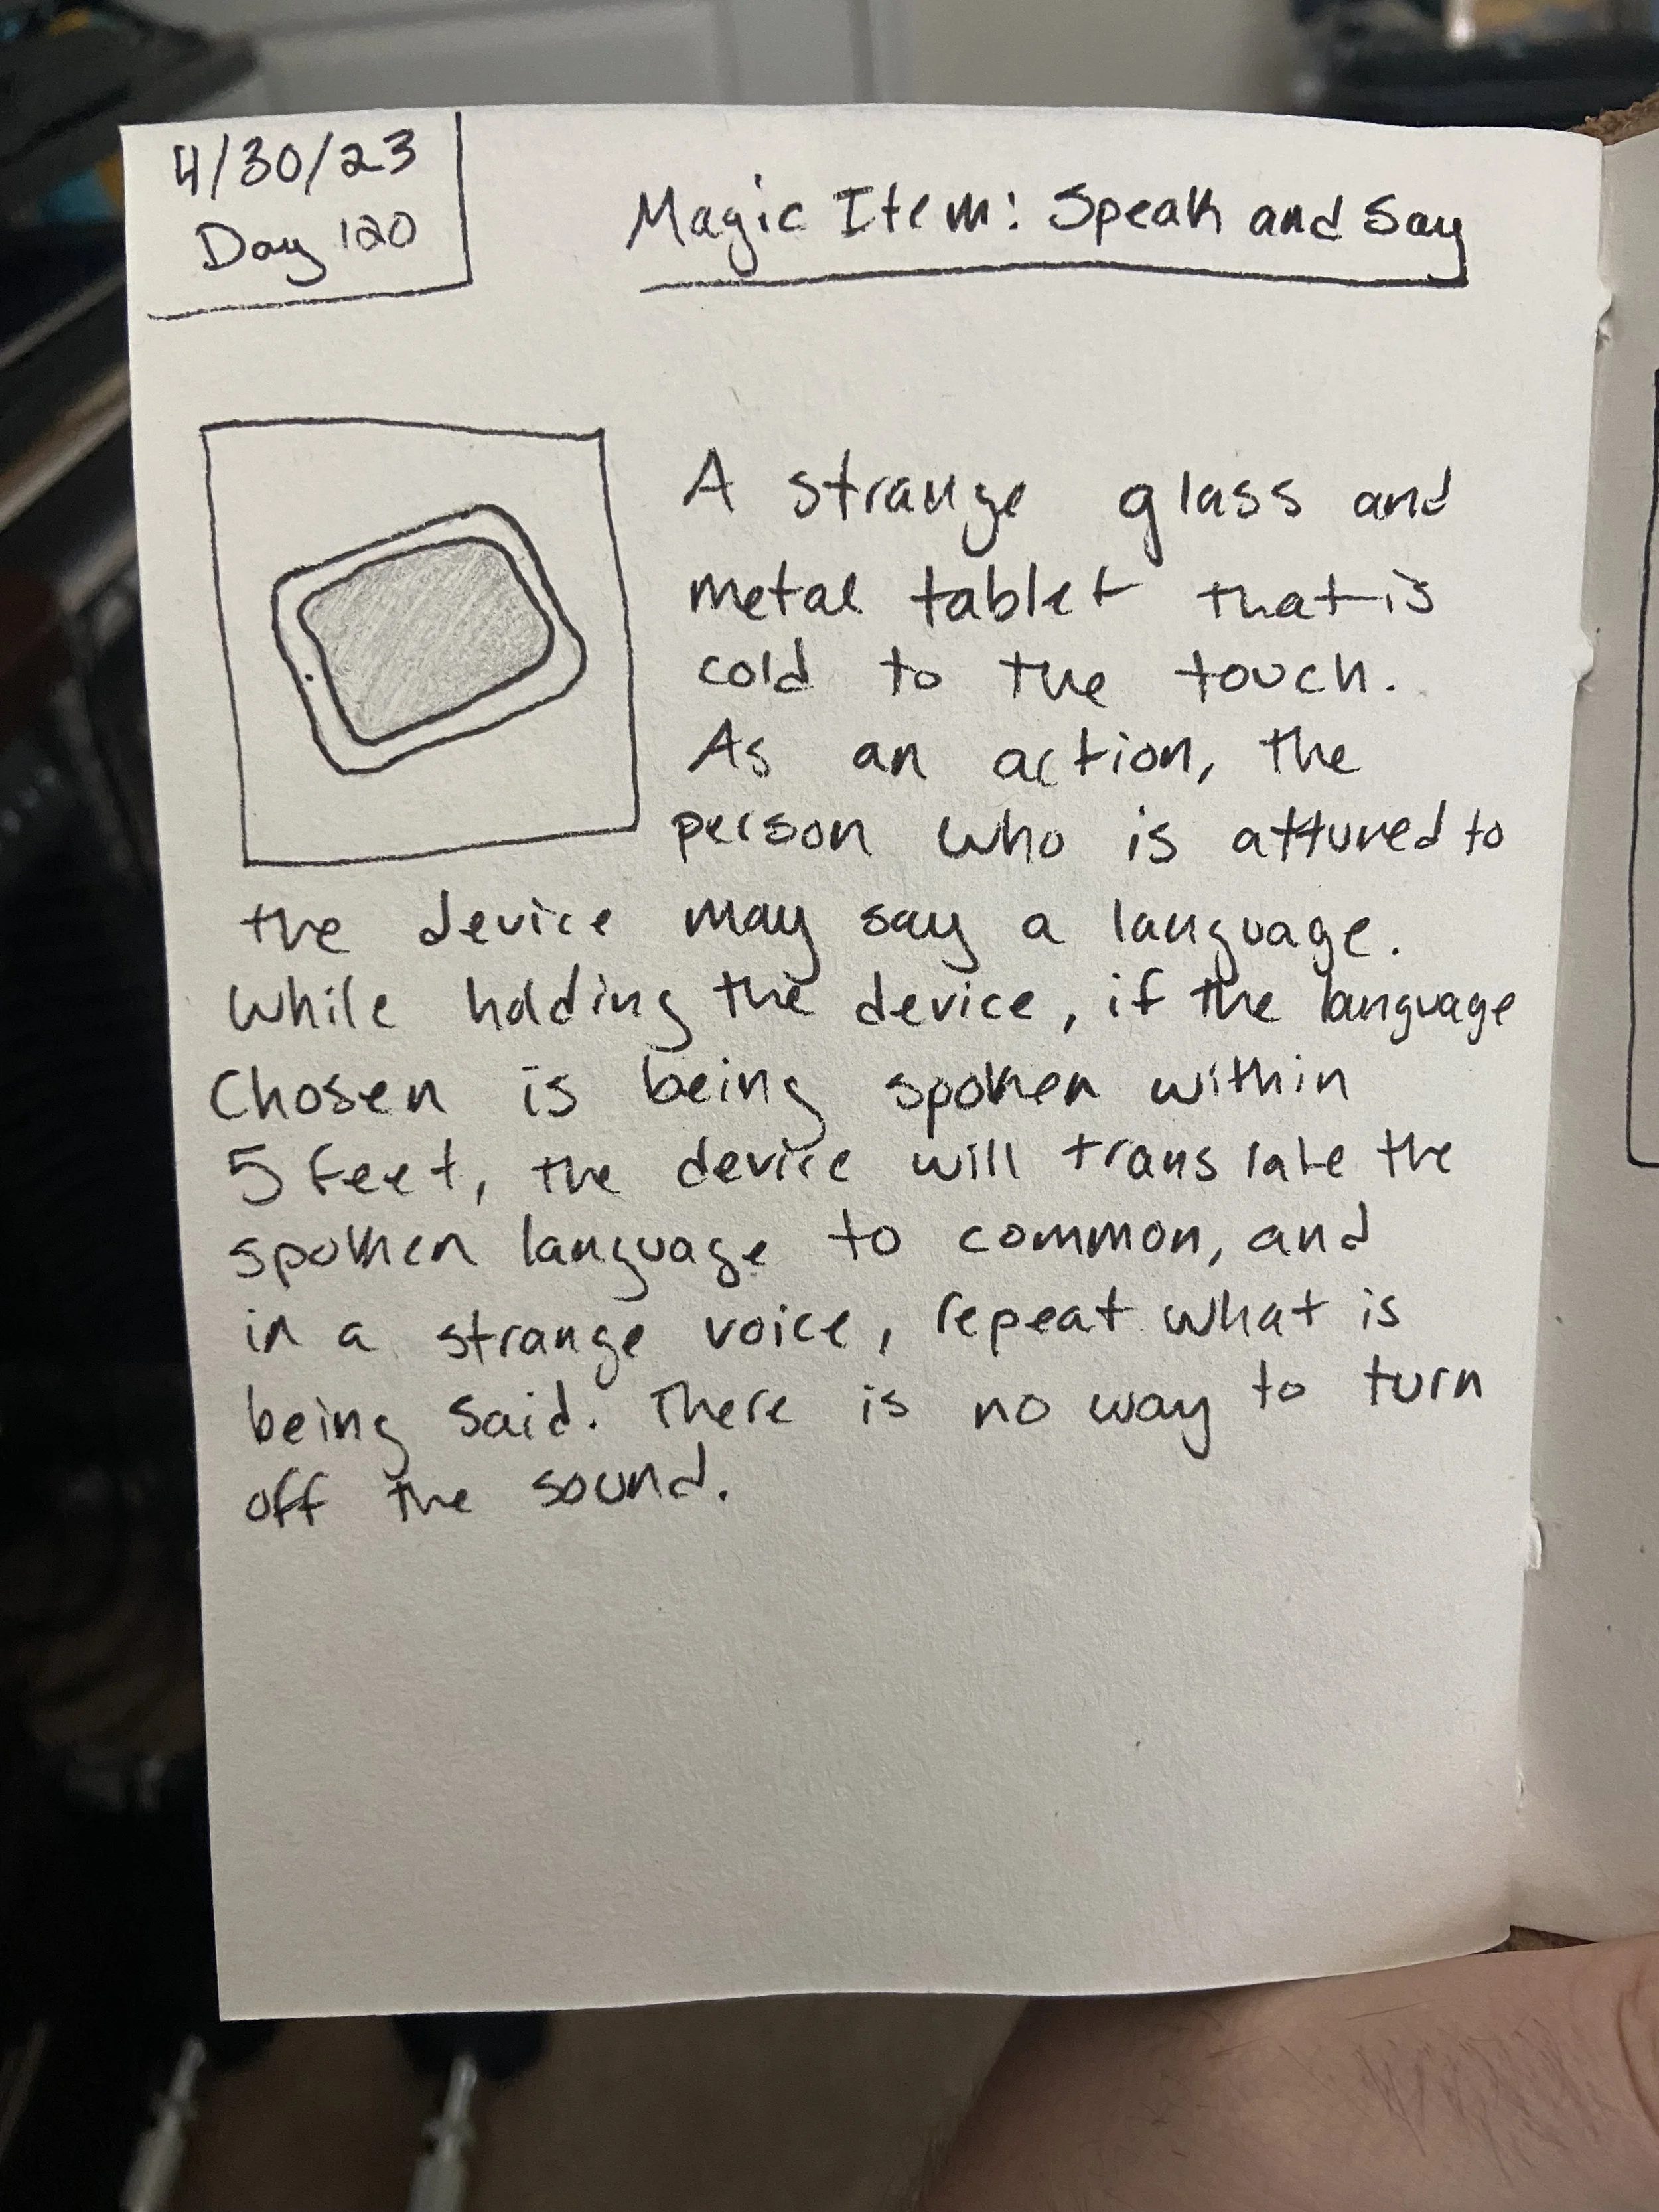 4/30/23
Day 120
Magic Item: Speak and Say
A strange glass and
metal tablet that is
cold to the touch.
As an action, the
person who is attuned to
the device may say a language.
While holding the device, if the language
chosen is being spoken within
5 feet, the device will translate the
spoken language to common, and
in a strange voice, repeat what is
being said. There is no way to turn
off the sound.